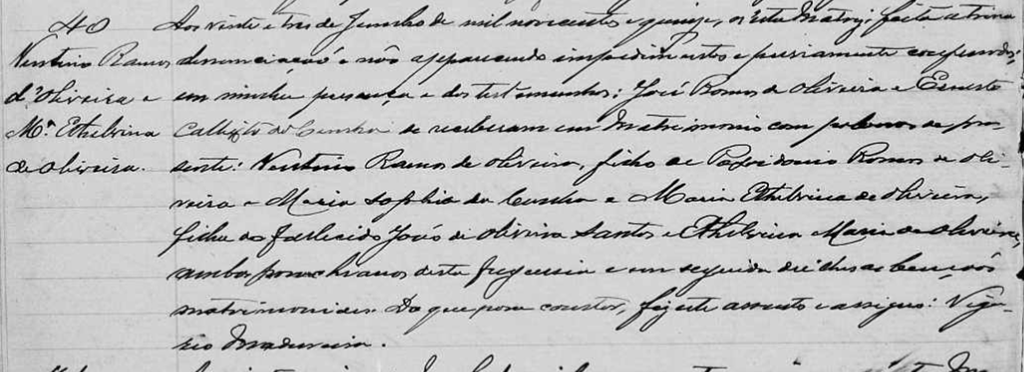 40
Ventino Ramos
d'Oliveira e
Mª Ethelvina
de Oliveira.
Aos vinte e tres de Junho de mil novecentos e quinze, n'esta Matriz, feita a trina
denunciação e não apparecendo impedimentos e previamente confessados,
em minha presença e das testemunhas: José Ramos de Oliveira e Ernesto
Callixto da Cunha se receberam em Matrimonio com palavras de pre-
sente: Ventino Ramos de Oliveira, filho de Ramos de Oli-
veira e Maria Sophia da Cunha e Maria Ethelvina de Oliveira,
filha do fallecido João de Oliveira Santos e Ethelvina Maria de Oliveira,
ambos parochianos desta freguesia e em seguida dei-lhes as bençãos
matrimoniaes. Do que para constar, fiz este assento e assigno: Viga-
rio Madureira.